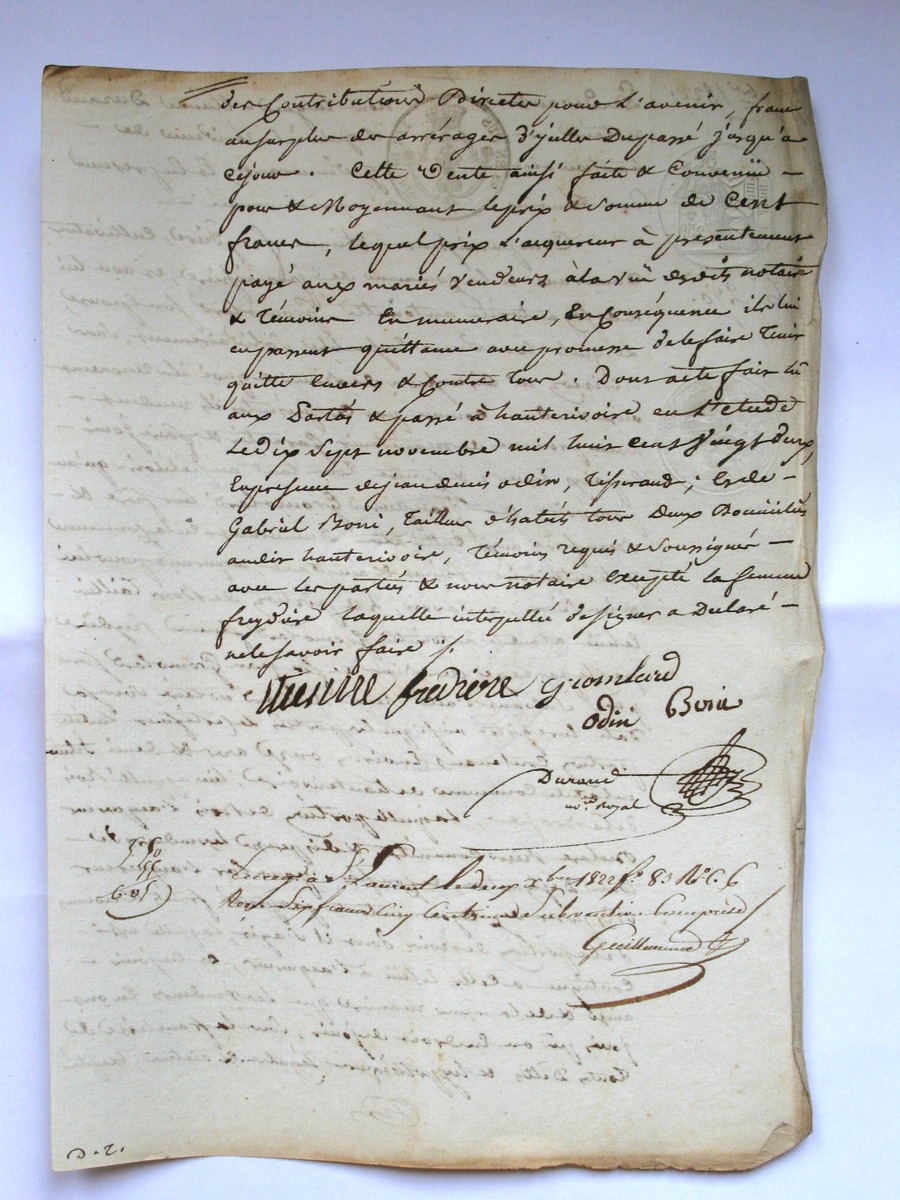 des Contributions Directes pour L'avenir, franc
ausurplus des arrérages D'yelles Dupassé jusqu'a
cejour. Cette Vente ainsi faite & Convenüe -
pour & Moyennant le prix & somme de Cent
francs, lequel prix L'aquereur à présentement
payé aux mariés Vendeurs à la vüe desdits notaire
& Témoins En numeraire, En Conséquence ils lui
en passent quittance avec promesse de le faire Tenir
quitte Envers & Contre tous. Dont acte fait lû
aux Partiés & passé à hauterivoire en L'etude
Le Dix Sept novembre mil huit cent Vingt deux,
En presence de jean denis odin, Tisserand; Et de -
Gabriel Boni, Tailleur d'habits tous Deux Domiciliés
audit hauterivoire, Témoins requis & soussignés -
avec les partiés & nous notaire Excepté la femme
freydiére laquelle interpellée de signer a Declaré -
ne le savoir faire ./.
ettienne fredière gromlard
odin Boni
Durand
no.re Royal
Enregis a St Laurent le deux xbre 1822 fo 83 Ro C. 6
Reçu Six francs Cinq Centimes Subvention Comprise
Guillemin
5.50
55
6.05
D. t.